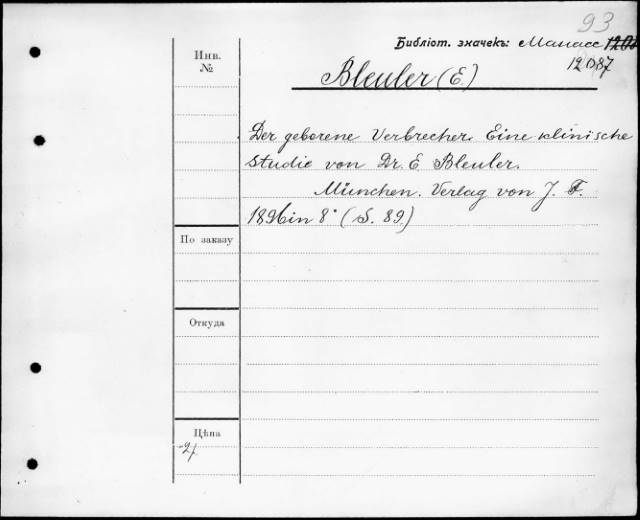 93
Библіот. значекъ: Манасс
12087
Инв.
№
Bleuler (E.)
Der geborene Verbrecher. Eine klinische
Studie von Dr. E. Bleuler.
München. Verlag von J. F.
1896 in 8° (S. 89.)
По заказу
Откуда
Цѣна